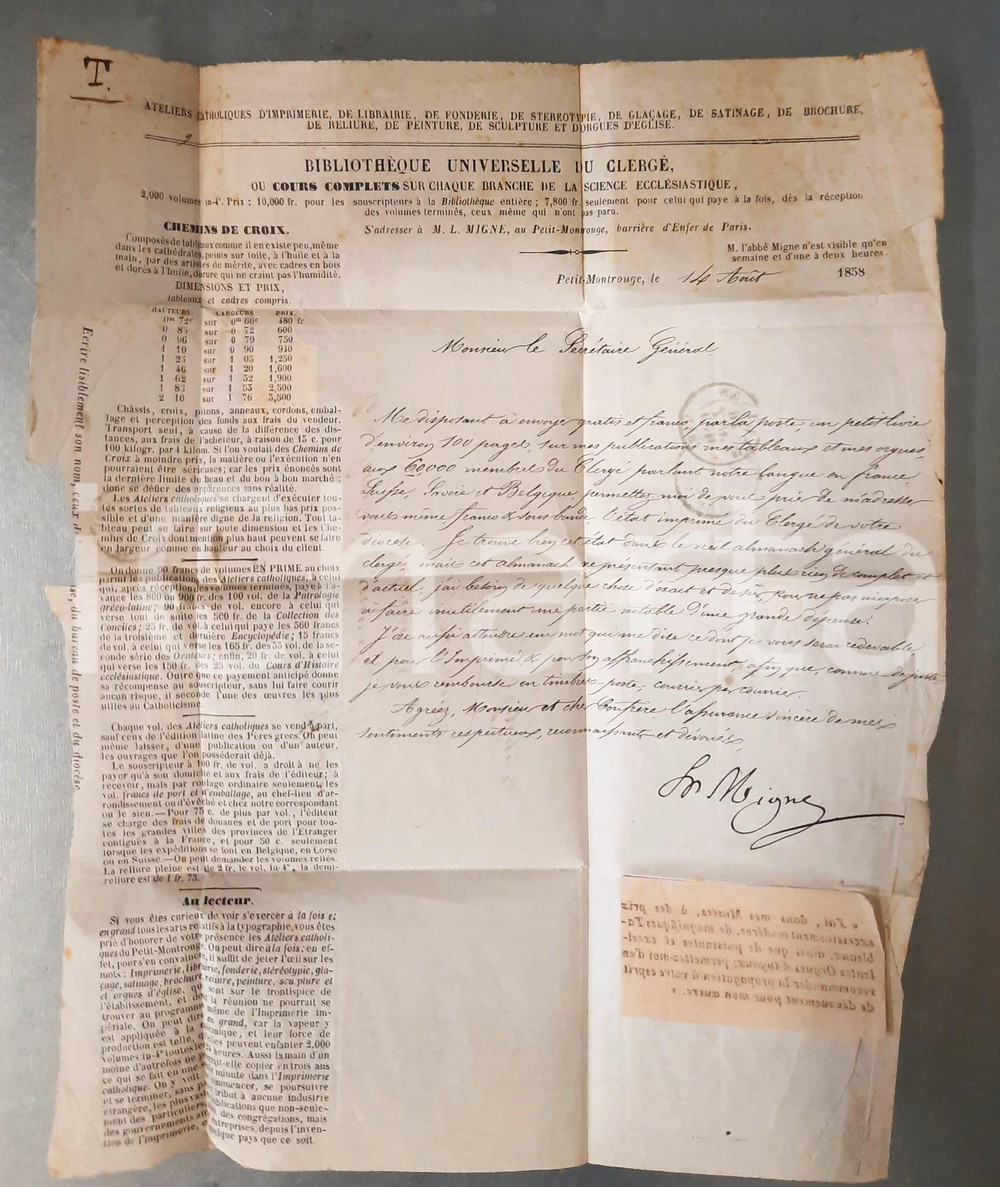 T.
ATELIERS CATHOLIQUES D'IMPRIMERIE, DE LIBRAIRIE, DE FONDERIE, DE STEREOTYPIE, DE GLAÇAGE, DE SATINAGE, DE BROCHURE,
DE RELIURE, DE PEINTURE, DE SCULPTURE ET D'ORGUES D'EGLISE.
BIBLIOTHÈQUE UNIVERSELLE DU CLERGÉ,
OU COURS COMPLETS SUR CHAQUE BRANCHE DE LA SCIENCE ECCLÉSIASTIQUE,
2,000 volumes in-4º. Prix : 10,000 fr. pour les souscripteurs à la Bibliothèque entière ; 7,800 fr. seulement pour celui qui paye à la fois, dès la réception
des volumes terminés, ceux même qui n'ont pas paru.
S'adresser à M. L. MIGNE, au Petit-Montrouge, barrière d'Enfer de Paris.
M. l'abbé Migne n'est visible qu'en
semaine et d'une à deux heures.
Petit-Montrouge, le 14 Août 1858
CHEMINS DE CROIX.
Composés de tableaux comme il en existe peu, même
dans les cathédrales, peints sur toile, à l'huile et à la
main, par des artistes de mérite, avec cadres en bois
et dorés à l'huile, dorure qui ne craint pas l'humidité.
DIMENSIONS ET PRIX,
tableaux et cadres compris.
HAUTEURS. LARGEURS PRIX.
0m 72c sur 0m 60c 480 fr
0 85 sur 0 72 600
0 96 sur 0 79 750
1 10 sur 0 90 940
1 25 sur 1 05 1,250
1 46 sur 1 20 1,600
1 62 sur 1 32 1,900
1 85 sur 1 53 2,500
2 10 sur 1 76 3,500
Châssis, croix, pitons, anneaux, cordons, embal-
lage et perception des fonds aux frais du vendeur.
Transport seul, à cause de la différence des dis-
tances, aux frais de l'acheteur, à raison de 15 c. pour
100 kilogr. par 4 kilom. Si l'on voulait des Chemins de
Croix à moindre prix, la matière ou l'exécution n'en
pourraient être sérieuses; car les prix énoncés sont
la dernière limite du beau et du bon à bon marché ;
donc se défier des apparences sans réalité.
Les Ateliers catholiques se chargent d'exécuter tou-
tes sortes de tableaux religieux au plus bas prix possi-
ble et d'une manière digne de la religion. Tout ta-
bleau peut se faire sur toute dimension et les Che-
mins de Croix dont mention plus haut peuvent se faire
en largeur comme en hauteur au choix du client.
On donne 90 francs de volumes EN PRIME au choix
parmi les publications des Ateliers catholiques, à celui
qui, après réception des volumes terminés, paye à l'a-
vance les 800 ou 900 fr. des 100 vol. de la Patrologie
gréco-latine; 90 francs de vol. encore à celui qui
verse tout de suite les 500 fr. de la Collection des
Conciles; 25 fr. de vol. à celui qui paye les 360 francs
de la troisième et dernière Encyclopédie; 15 francs
de vol. à celui qui verse les 165 fr. des 33 vol. de la se-
conde série des Orateurs; enfin, 20 fr. de vol. à celui
qui verse les 150 fr. des 25 vol. du Cours d'Histoire
ecclésiastique. Outre que ce payement anticipé donne
sa récompense au souscripteur, sans lui faire courir
aucun risque, il seconde l'une des œuvres les plus
utiles au Catholicisme.
Chaque vol. des Ateliers catholiques se vend à part,
sauf ceux de l'édition latine des Pères grecs. On peut
même laisser, d'une publication ou d'un auteur,
les ouvrages que l'on posséderait déjà.
Le souscripteur à 100 fr. de vol. a droit à ne les
payer qu'à son domicile et aux frais de l'éditeur; à
recevoir, mais par roulage ordinaire seulement, les
vol. francs de port et d'emballage, au chef-lieu d'ar-
rondissement ou d'évêché et chez notre correspondant
ou le sien. — Pour 75 c. de plus par vol., l'éditeur
se charge des frais de douanes et de port pour tou-
tes les grandes villes des provinces de l'Etranger
contiguës à la France, et pour 50 c. seulement
lorsque les expéditions se font en Belgique, en Corse
ou en Suisse. — On peut demander les volumes reliés.
La reliure pleine est de 2 fr. le vol. in-4º, la demi-
reliure est de 1 fr. 75.
Au lecteur.
Si vous êtes curieux de voir s'exercer à la fois et
en grand tous les arts relatifs à la typographie, vous êtes
prié d'honorer de votre présence les Ateliers catholi-
ques du Petit-Montrouge. On peut dire à la fois : en ef-
fet, pour s'en convaincre, il suffit de jeter l'œil sur les
mots : Imprimerie, librairie, fonderie, stéréotypie, gla-
çage, satinage, brochure, reliure, peinture, sculpture et
et orgues d'église, qui sont sur le frontispice de
l'établissement, et dont la réunion ne pourrait se
trouver au programme même de l'Imprimerie im-
périale. On peut dire en grand, car la vapeur y
est appliquée à la mécanique, et leur force de
production est telle, qu'elles peuvent enfanter 2,000
volumes in-4º toutes les 24 heures. Aussi la main d'un
moine d'autrefois ne pourrait-elle copier en trois ans
ce qui se fait en une minute dans l'Imprimerie
catholique. On y voit commencer, se poursuivre
et se terminer, sans tribut à aucune industrie
étrangère, les plus vastes publications que non-seule-
ment des particuliers, des congrégations, mais
des gouvernements aient entreprises, depuis l'inven-
tion de l'imprimerie, quelque pays que ce soit
Ecrire lisiblement son nom, ceux de se, du bureau de poste et du diocèse
Monsieur le Secrétaire Général,
Me disposant à envoyer gratis et franco, par la poste un petit livre
d'environ 100 pages, sur mes publications, mes tableaux et mes orgues
aux 60000 membres du Clergé parlant notre langue en France
Suisse, Savoie et Belgique, permettez moi de vous prier de m'adresser
vous même franco & sous bande, l'état imprimé du Clergé de votre
diocèse. Je trouve bien cet état dans le vieil almanach général du
clergé, mais cet almanach ne présentant presque plus rien de complet et
d'actuel, j'ai besoin de quelque chose d'exact et de sûr, pour ne pas m'exposer
à faire inutilement une partie notable d'une grande dépense.
J'ose aussi attendre un mot qui me dise ce dont je vous serai redevable
et pour l'Imprimé & pour son affranchissement, afin que, comme de juste
je vous rembourse en timbres poste, courrier par courrier.
Agréez, Monsieur et cher Confrère l'assurance sincère de mes
sentiments respectueux, reconnaissants et dévoués,
Migne
« J'ai, dans mes Musées, à des prix
excessivement modérés, de magnifiques Ta-
bleaux, ainsi que de puissantes et excel-
lentes Orgues à tuyaux; permettez-moi d'en
recommander la propagation à votre esprit
de dévouement pour mon œuvre. »